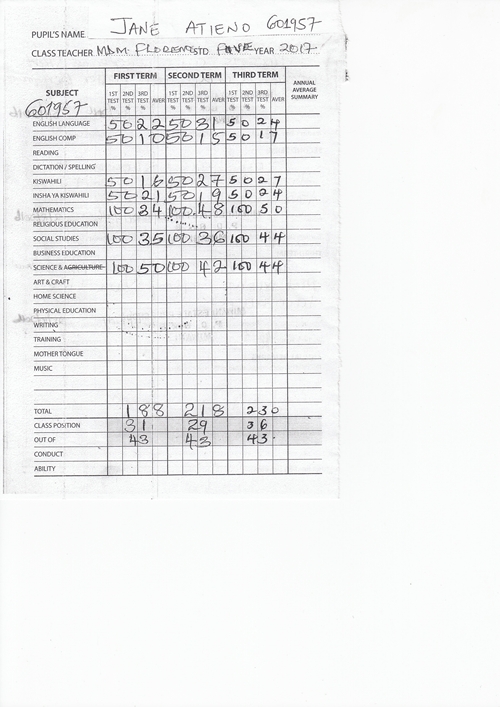 PUPIL'S NAME JANE ATIENO 601957
CLASS TEACHER STD FIVE YEAR 2017
FIRST TERM SECOND TERM THIRD TERM ANNUAL AVERAGE SUMMARY
SUBJECT 1ST TEST % 2ND TEST % 3RD TEST % AVER 1ST TEST % 2ND TEST % 3RD TEST % AVER 1ST TEST % 2ND TEST % 3RD TEST % AVER
601957
ENGLISH LANGUAGE 50 22 50 31 50 24
ENGLISH COMP 50 10 50 15 50 17
READING
DICTATION / SPELLING
KISWAHILI 50 16 50 27 50 27
INSHA YA KISWAHILI 50 21 50 19 50 24
MATHEMATICS 100 34 100 48 100 50
RELIGIOUS EDUCATION
SOCIAL STUDIES 100 35 100 36 100 44
BUSINESS EDUCATION
SCIENCE & AGRICULTURE 100 50 100 42 100 44
ART & CRAFT
HOME SCIENCE
PHYSICAL EDUCATION
WRITING
TRAINING
MOTHER TONGUE
MUSIC
TOTAL 188 218 230
CLASS POSITION 31 29 36
OUT OF 43 43 43
CONDUCT
ABILITY